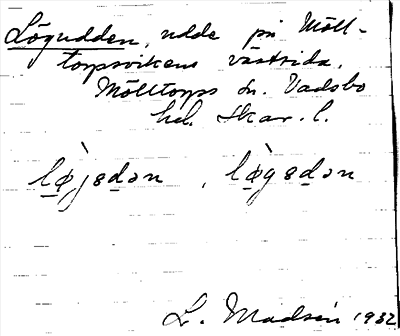 Lögudden, udde på Möll-
torpsvikens västsida.
Mölltorps sn. Vadsbo
hd. Skar. l.
lø̀jɞdən , lø̀gɞdən
L. Madsén 1932